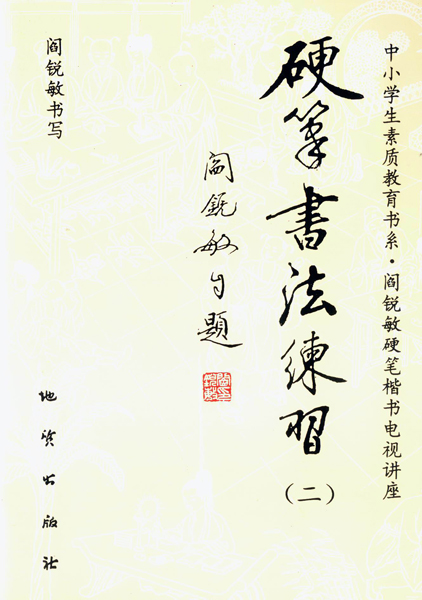 中小学生素质教育书系·阎锐敏硬笔楷书电视讲座
硬筆書法練習
（二）
阎锐敏自題
阎锐敏书写
地质出版社